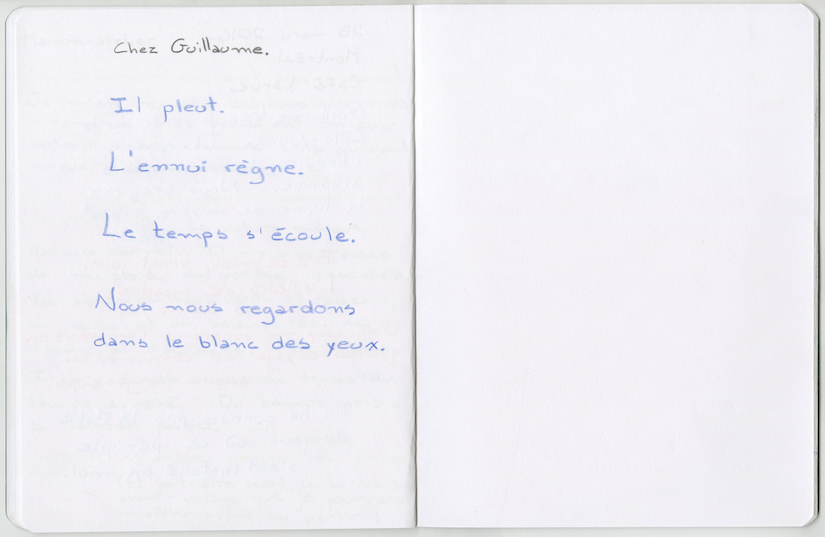 Chez Guillaume.
Il pleut.
L'ennui règne.
Le temps s'écoule.
Nous nous regardons
dans le blanc des yeux.